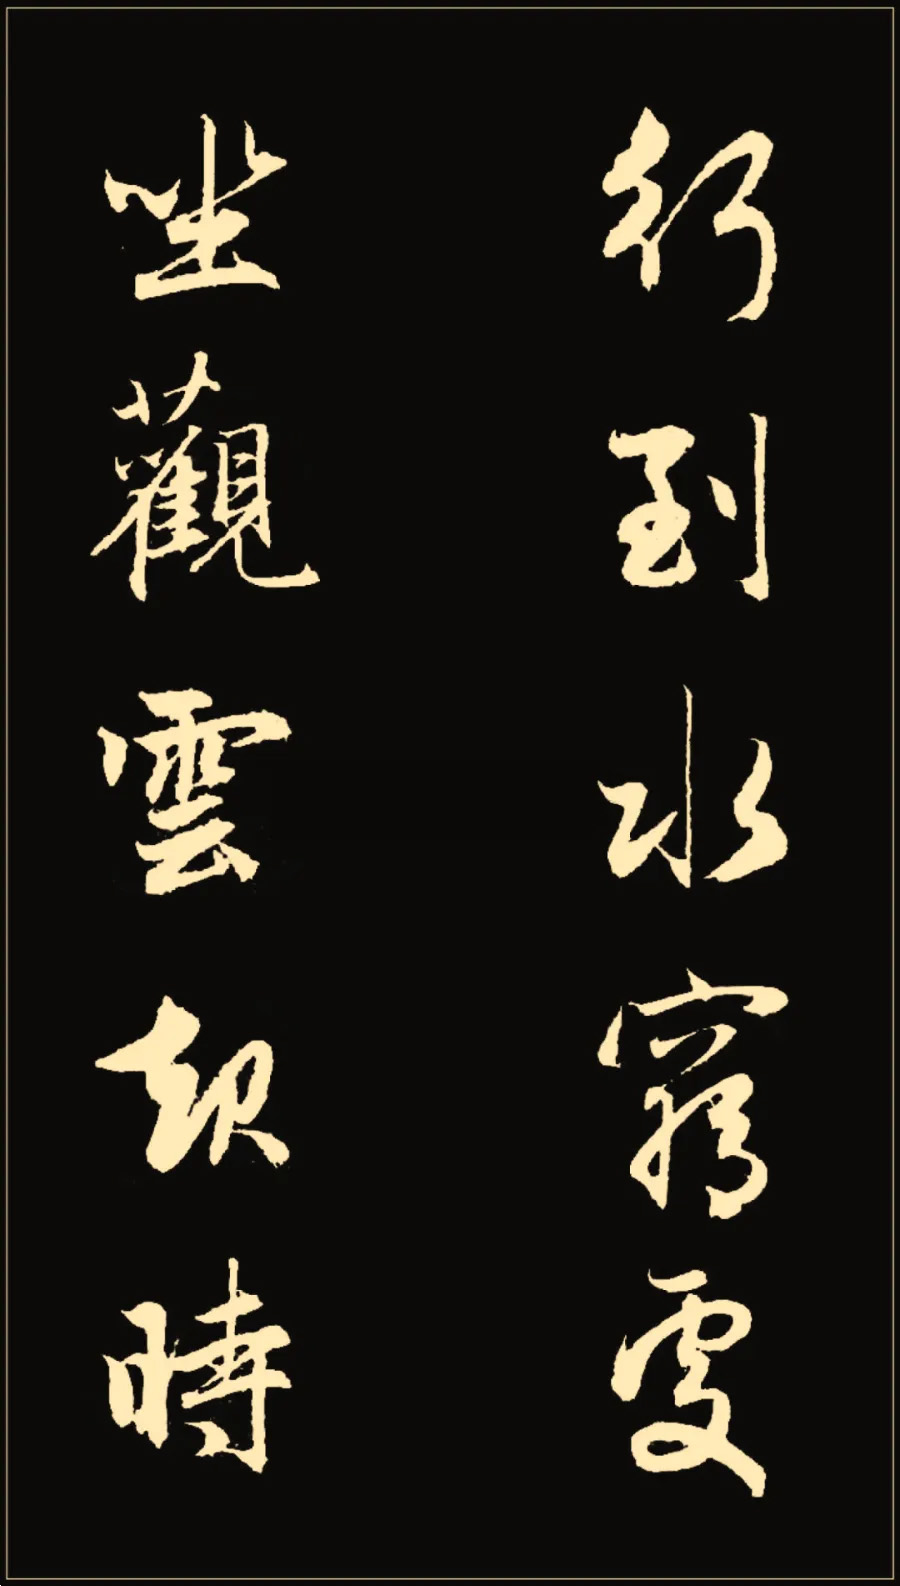 行到水窮處
坐觀雲起時